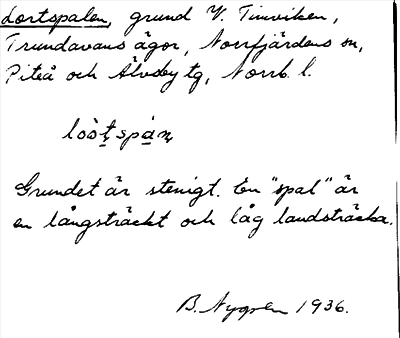 Lortspalen, grund V. Timviken,
Trundavans ägor, Norrfjärdens sn,
Piteå och Älvsby tg, Norrb. l.
Grundet är stenigt. En "spal" är
en långsträckt och låg landsträcka.
B. Nygren 1936.